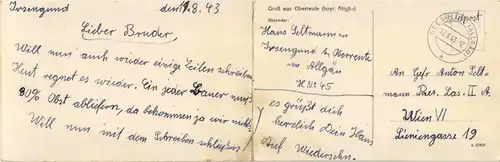 Irsengund den 11.8.43
Lieber Bruder,
Will nun auch wieder einige Zeilen schreiben
Heut regnet es wieder. Ein jeder Bauer muß
80% Obst abliefern, da bekommen ja wir nicht
Will nun mit dem Schreiben schließen
Gruß aus Oberreute (bayr. Allgäu)
Absender:
Hans Seltmann
Irsengund b/ Oberreute
im Allgäu
H Nr 45
es grüßt dich
herzlich Dein Hans
Auf Wiedersehn.
Feldpost
An Gefr Anton Selt-
mann Res. Laz. II A.
Wien VI
Liniengasse 19